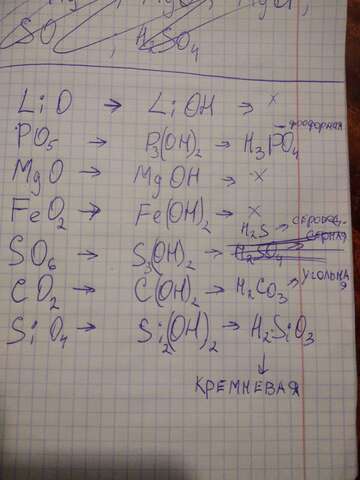 SO , H₂SO₄
LiO → LiOH → x
PO₅ → P₃(OH)₂ → H₃PO₄ – фосфорная
MgO → MgOH → x
FeO₂ → Fe(OH)₂ → x
H₂S → серовод.
SO₆ → S₃(OH)₂ → H₂SO₄ → серная
CO₂ → C(OH)₂ → H₂CO₃ → угольная
SiO₄ → Si₂(OH)₂ → H₂SiO₃
↓
КРЕМНЕВАЯ